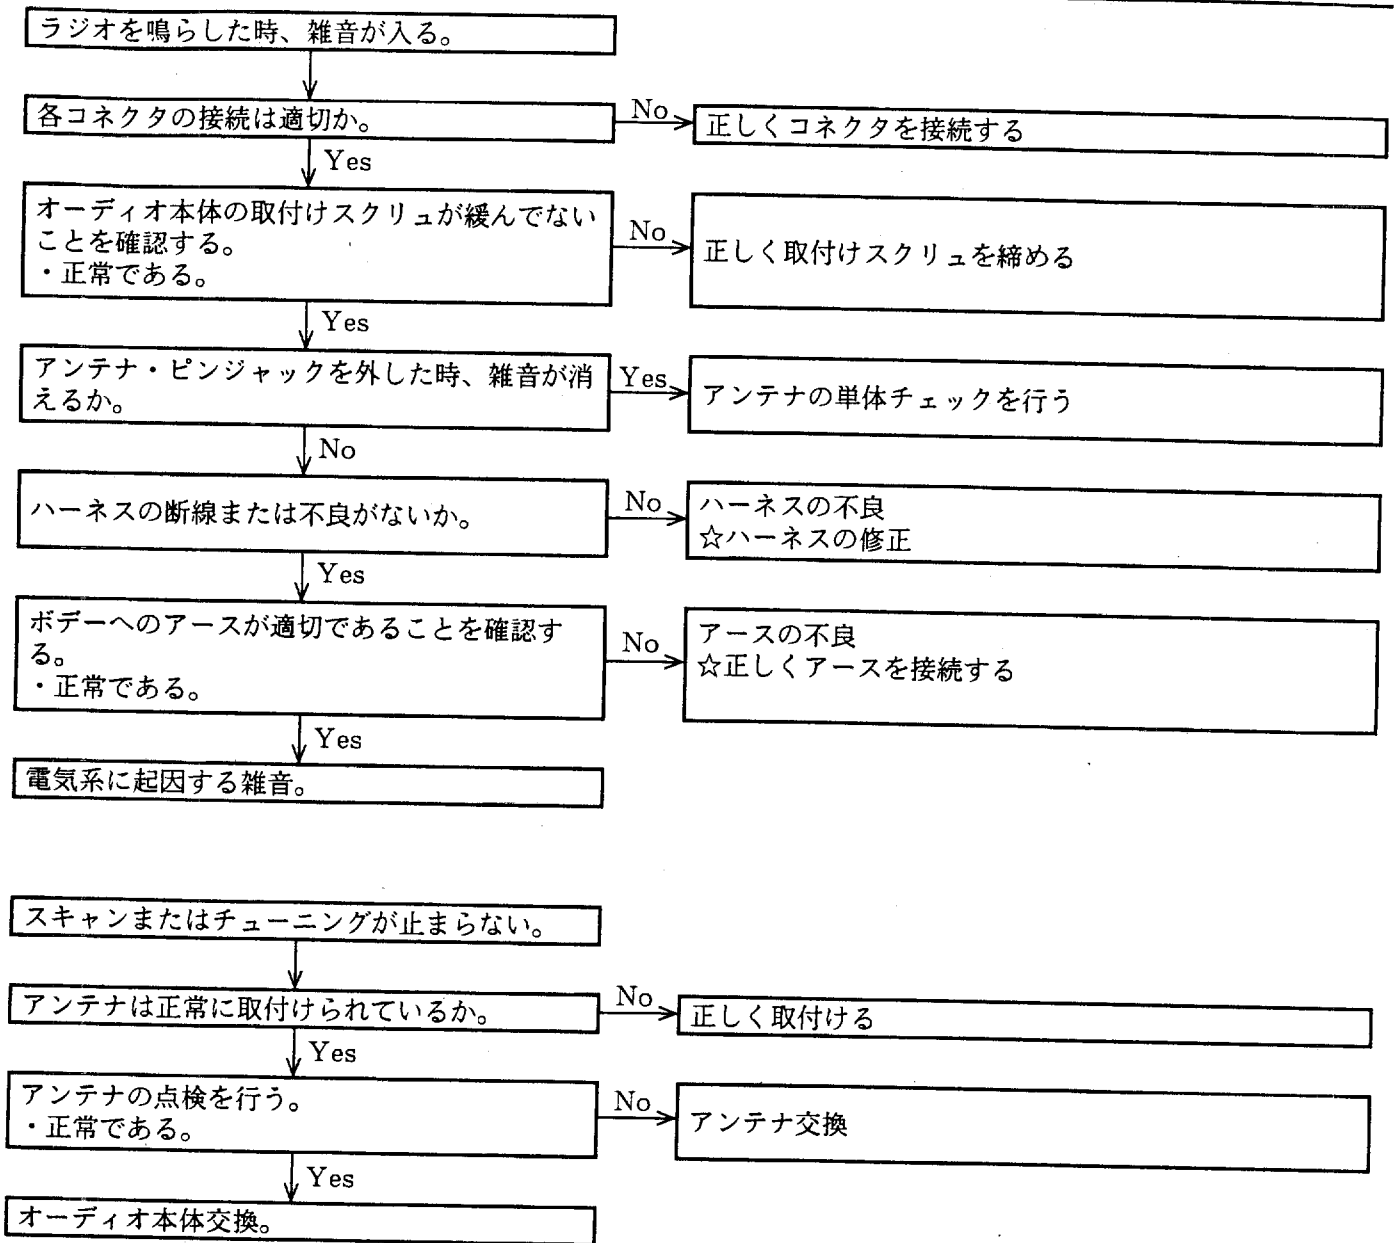 ラジオを鳴らした時、雑音が入る。
各コネクタの接続は適切か。
No
正しくコネクタを接続する
Yes
オーディオ本体の取付けスクリュが緩んでない
ことを確認する。
・正常である。
No
正しく取付けスクリュを締める
Yes
アンテナ・ピンジャックを外した時、雑音が消
えるか。
Yes
アンテナの単体チェックを行う
No
ハーネスの断線または不良がないか。
No
ハーネスの不良
☆ハーネスの修正
Yes
ボデーへのアースが適切であることを確認す
る。
・正常である。
No
アースの不良
☆正しくアースを接続する
Yes
電気系に起因する雑音。
スキャンまたはチューニングが止まらない。
アンテナは正常に取付けられているか。
No
正しく取付ける
Yes
アンテナの点検を行う。
・正常である。
No
アンテナ交換
Yes
オーディオ本体交換。